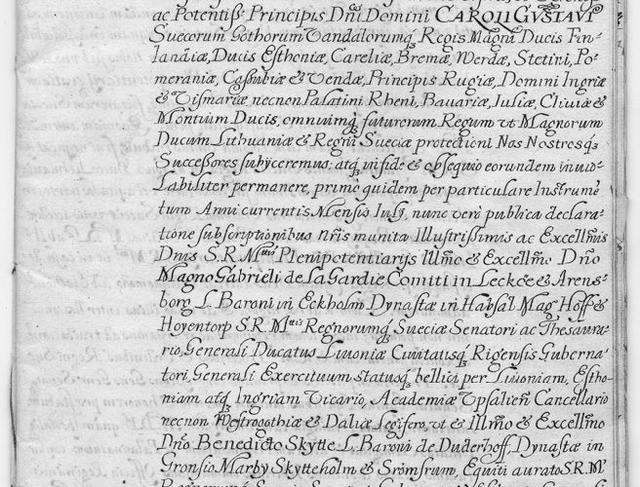 ac Potentiss Principis Dñi Domini CAROLI GVSTAVI
Suecorum Gothorum Vandalorumq Regis Magni Ducis Fin-
landiæ, Ducis Esthoniæ, Careliæ, Bremæ, Werdæ, Stetini, Po-
meraniæ, Cassubiæ & Vendæ, Principis Rugiæ, Domini Ingriæ
& Vismariæ, necnon Palatini Rheni, Bauariæ, Juliæ, Cliuiæ &
Montium Ducis, omniumq futurorum Regum vt Magnorum
Ducum Lithuaniæ & Regni Sueciæ protectioni Nos Nostrosq
Successores subijceremus, atq in fide & obsequio eorundem inuio-
labiliter permanere, primo quidem per particulare Instrumē
tum Anni currentis Mensis Iulij, nunc vero publica declara-
tione subscriptionibus nris munita Illustrissimis ac Excellmis
Dnis S.R.Mtis Plenipotentiarijs Illmo & Excellmo Dño
Magno Gabrieli de la Gardie Comiti in Leckœ & Arens-
borg L. Baroni in Eckholm Dynastæ in Habsal Mag Hoff &
Hoyentorp S.R.Mtis Regnorumq Sueciæ Senatori ac Thesaura-
rio, Generali Ducatus Liuoniæ Ciuitatisq Rigensis Guberna-
tori, Generali Exercituum statusq bellici per Liuoniam, Estho-
niam atq Ingriam Vicario, Academiæ Vpsalien Cancellario
necnon Westrogothiæ & Daliæ Legifero, vt & Illmo & Excellmo
Dño Benedicto Skytte L. Baroni de Duderhoff, Dynastæ in
Gronsio Marby Skytteholm & Strömsrum, Equiti aurato S.R.M